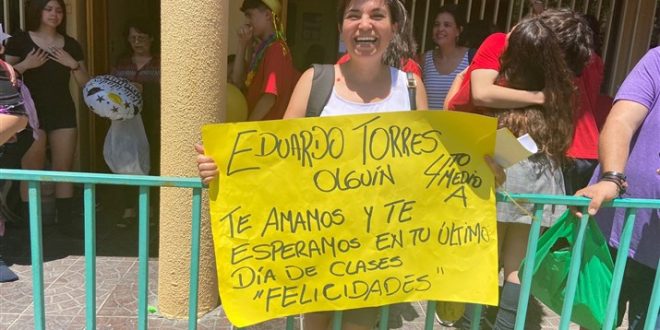 EDUARDO TORRES
OLGUÍN
4TO
MEDIO
A
TE AMAMOS Y TE
ESPERAMOS EN TU ÚLTIMO
DÍA DE CLASES
"FELICIDADES"